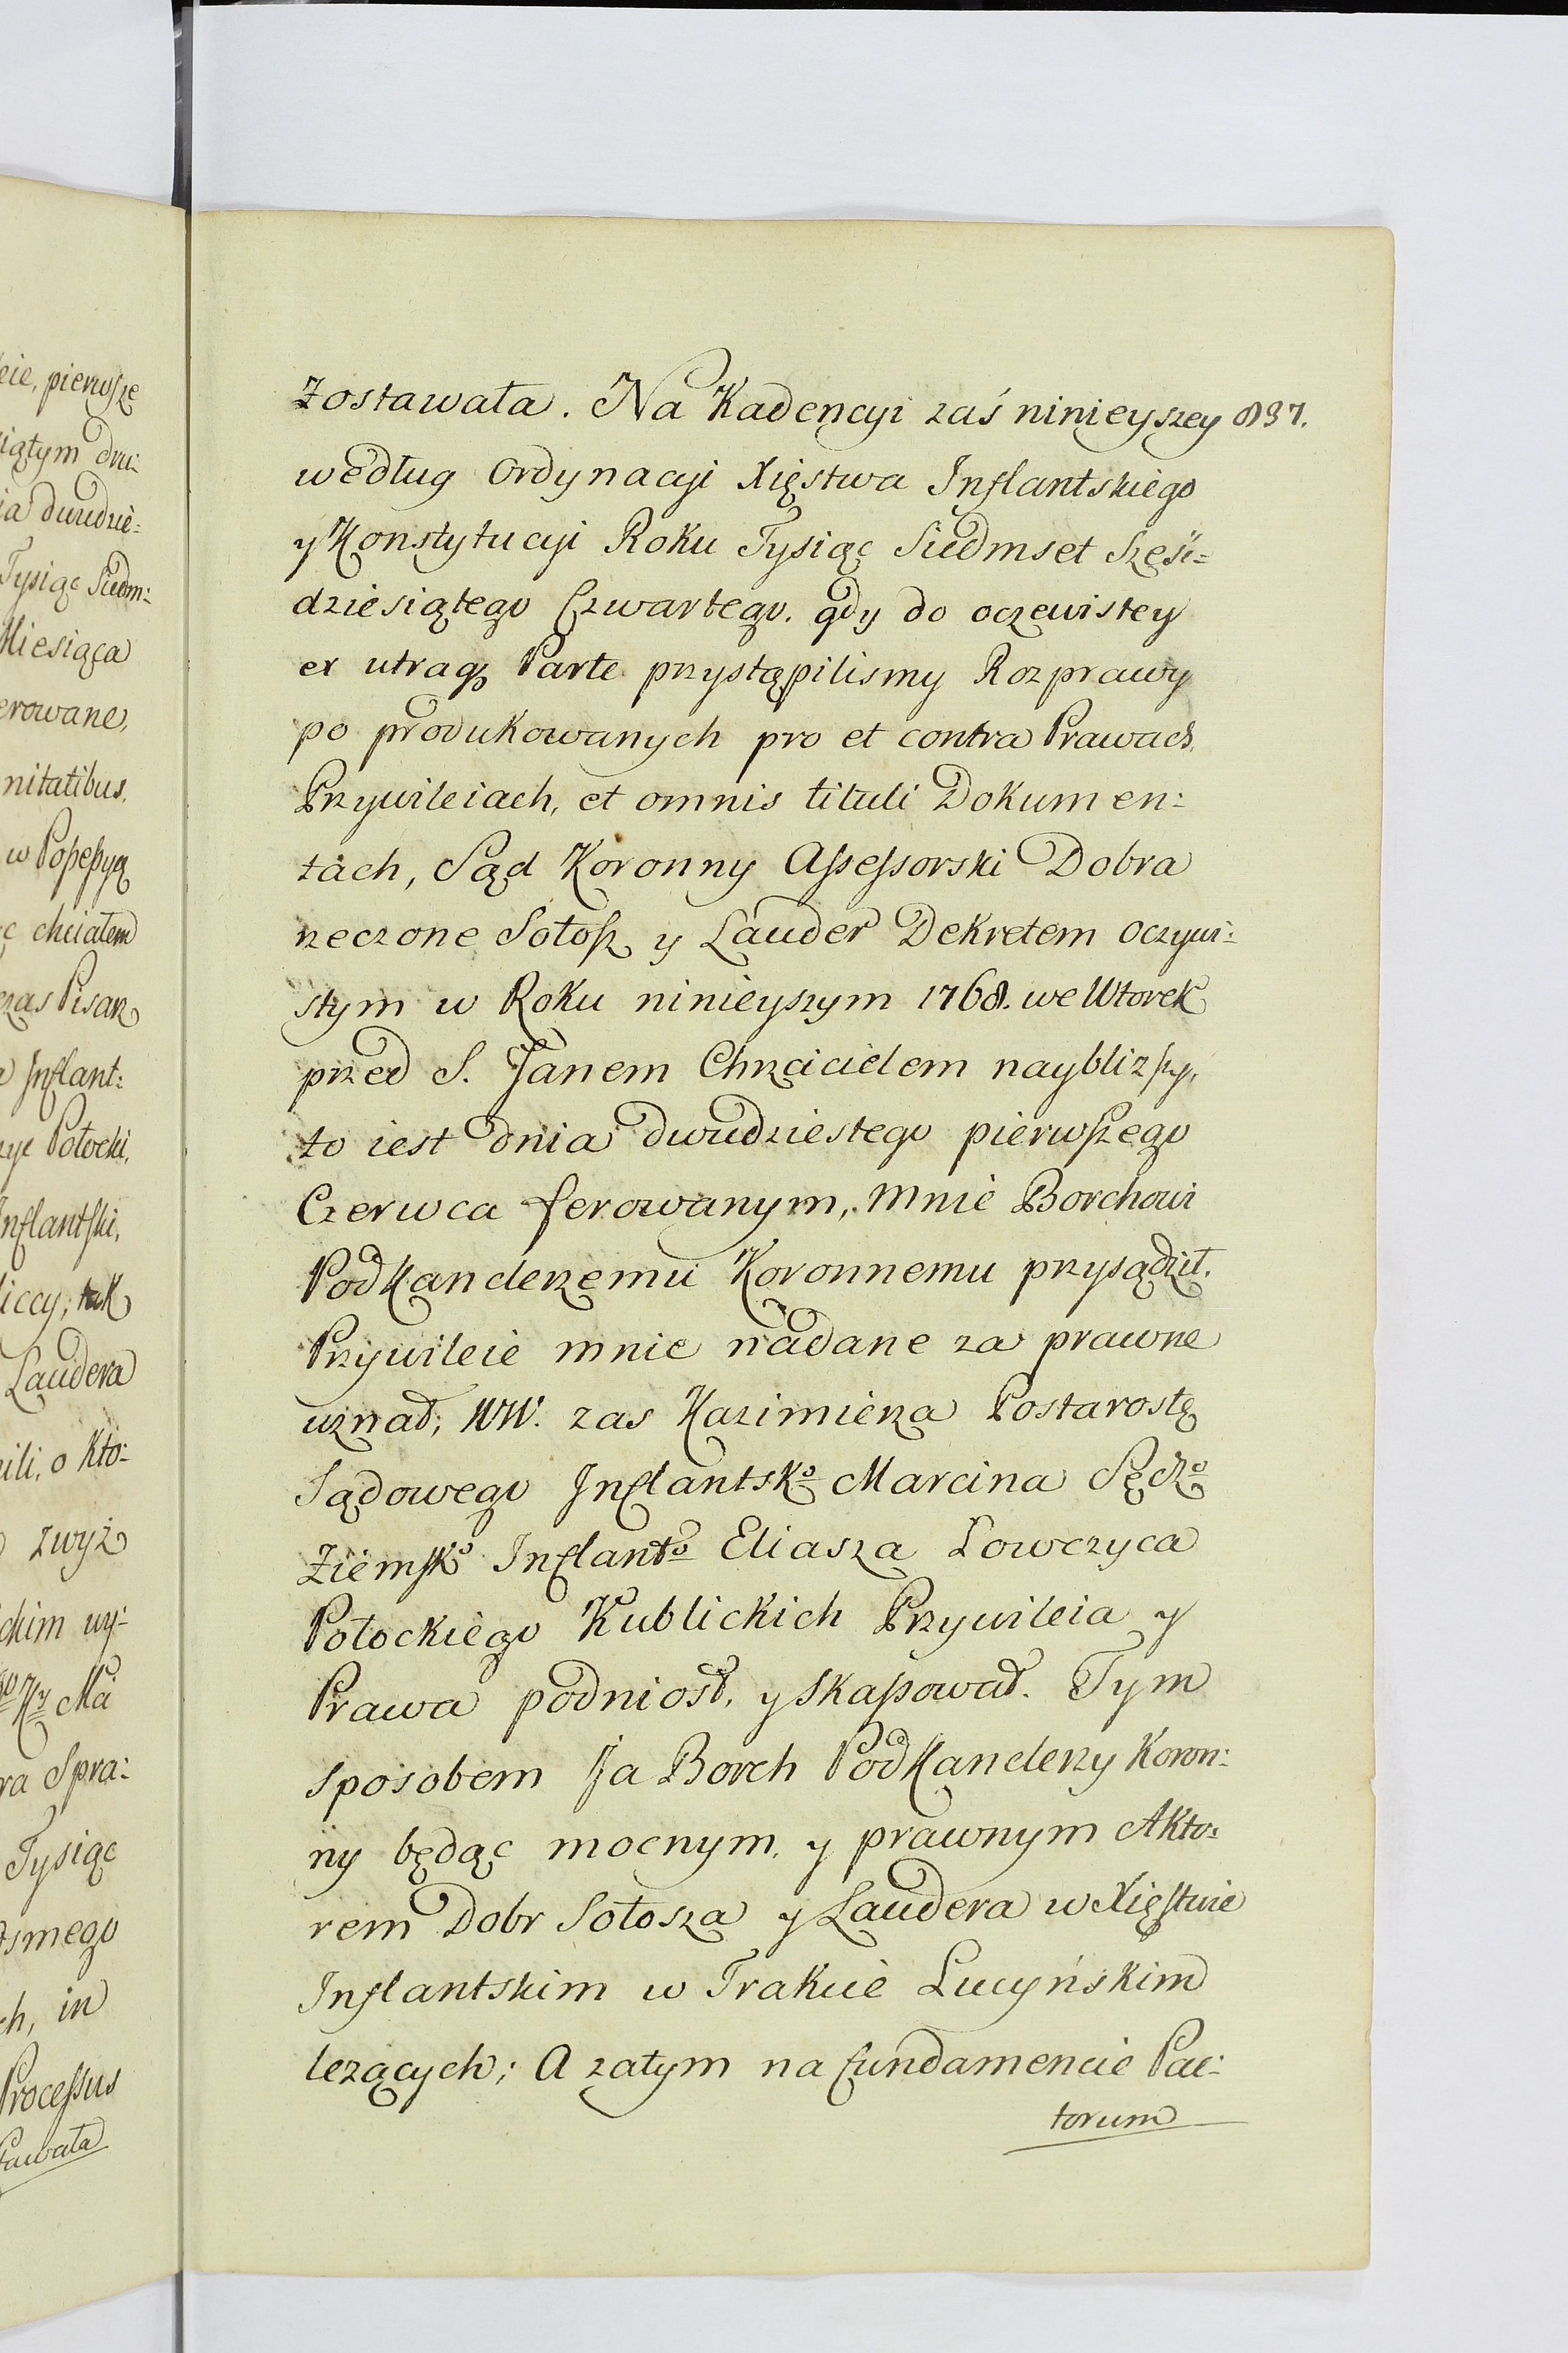 eie, pierwsze
iątym dru:
ia dwudzie=
Tysiąc Siedm:
Miesiąca
erowane,
nitatibus,
w Possessyą
ę chciałem
czas Pisarz
Inflant:
Połocki,
Inflantski,
liccy; tak
Laudera
ili, o Kto:
zwyż
chim wy-
Ma
ra Spra:
Tysiąc
osmego
ch, in
Processus
tawała
Zostawała. Na Kadencyi zaś ninieyszey 837.
według Ordynacyi Xięstwa Inflantskiego
y Konstytucyi Roku Tysiąc Siedmset Sześć=
dziesiątego Czwartego. gdy do oczewistey
ex utraq3 Parte przystąpilismy Rozprawy
po produkowanych pro et contra Prawach,
Przywileiach, et omnis tituli Dokumen:
tach, Sąd Koronny Assessorski Dobra
rzeczone Sołosz y Lauder Dekretem Oczywi:
stym w Roku ninieyszym 1768. we Wtorek
przed S. Janem Chrzcicielem naybliższy,
to iest dnia dwudziestego pierwszego
Czerwca ferowanym, mnie Borchowi
Podkanclerzemu Koronnemu przysądził.
Przywileie mnie nadane za prawne
uznał; WW. zas Kazimierza Postarostę
Sądowego Inflantsko Marcina Sędzo
Ziemsko Inflanto Eliasza Łowczyca
Połockiego Kublickich Przywileia y
Prawa podniosł, y skassował. Tym
sposobem Ja Borch Podkanclerzy Koron:
ny będąc mocnym, y prawnym Akto:
rem Dobr Sołosza y Laudera w Xięstwie
Inflantskim w Trakcie Lucyńskim
leżących; A zatym na fundamencie Pac:
torum